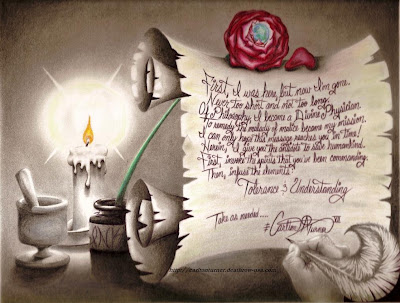 First, I was here, but now I'm gone.
Never too short and not too long;
Of Philosophy, I became a Divine Physician.
To remedy the malady of malice became my mission.
I can only hope this message reaches you in time!
Herein, I give you the antidote to save humankind.
First, invoke the spirits that you've been commanding.
Then, infuse the elements:
Tolerance & Understanding
Take as needed....